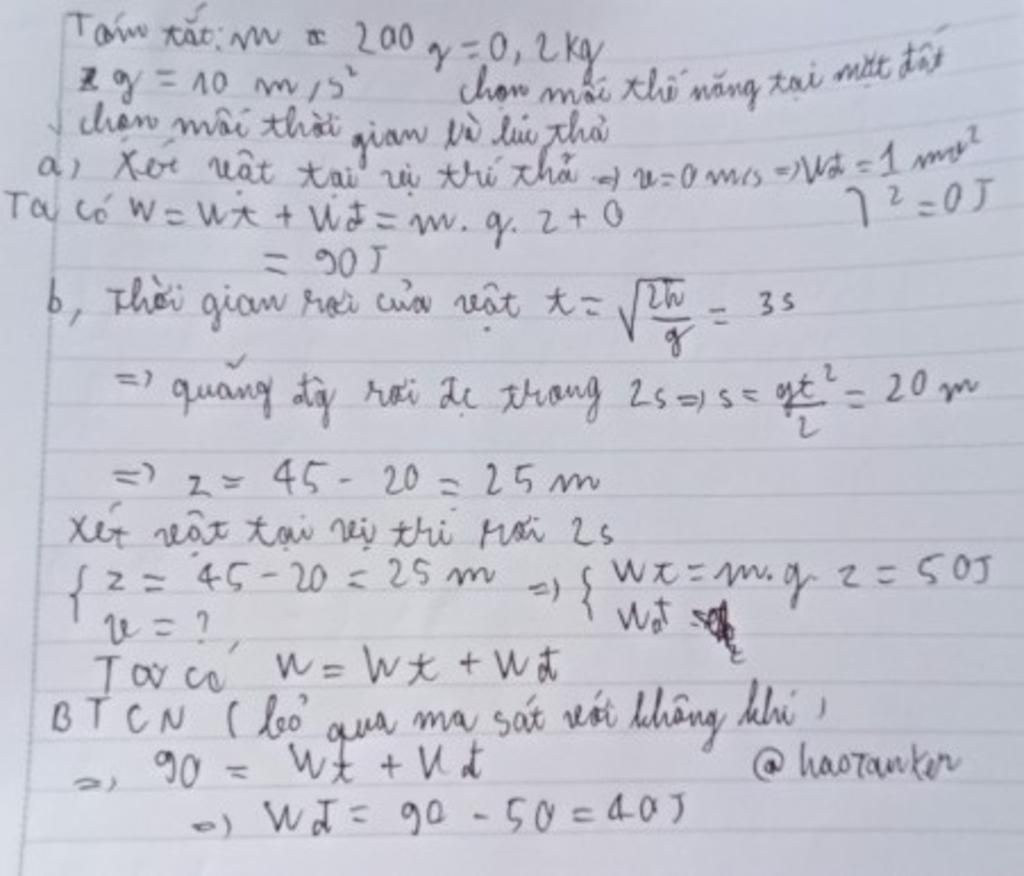 Tóm tắt: m = 200 g = 0,2 kg
g = 10 m/s² chọn mốc thế năng tại mặt đất
chọn mốc thời gian là lúc thả
a, Xét vật tại vị trí thả => v = 0 m/s => Wđ = 1/2 mv² = 0 J
Ta có W = Wt + Wđ = m. g. z + 0
= 90 J
b, thời gian rơi của vật t = √(2h/g) = 3 s
=> quãng đg rơi đc trong 2s => s = gt²/2 = 20 m
=> z = 45 - 20 = 25 m
Xét vật tại vị trí rơi 2s
{ z = 45 - 20 = 25 m => { Wt = m. g. z = 50 J
v = ? Wđ
Ta có W = Wt + Wđ
BTCN (bỏ qua ma sát với không khí)
=> 90 = Wt + Wđ @haotanker
=> Wđ = 90 - 50 = 40 J